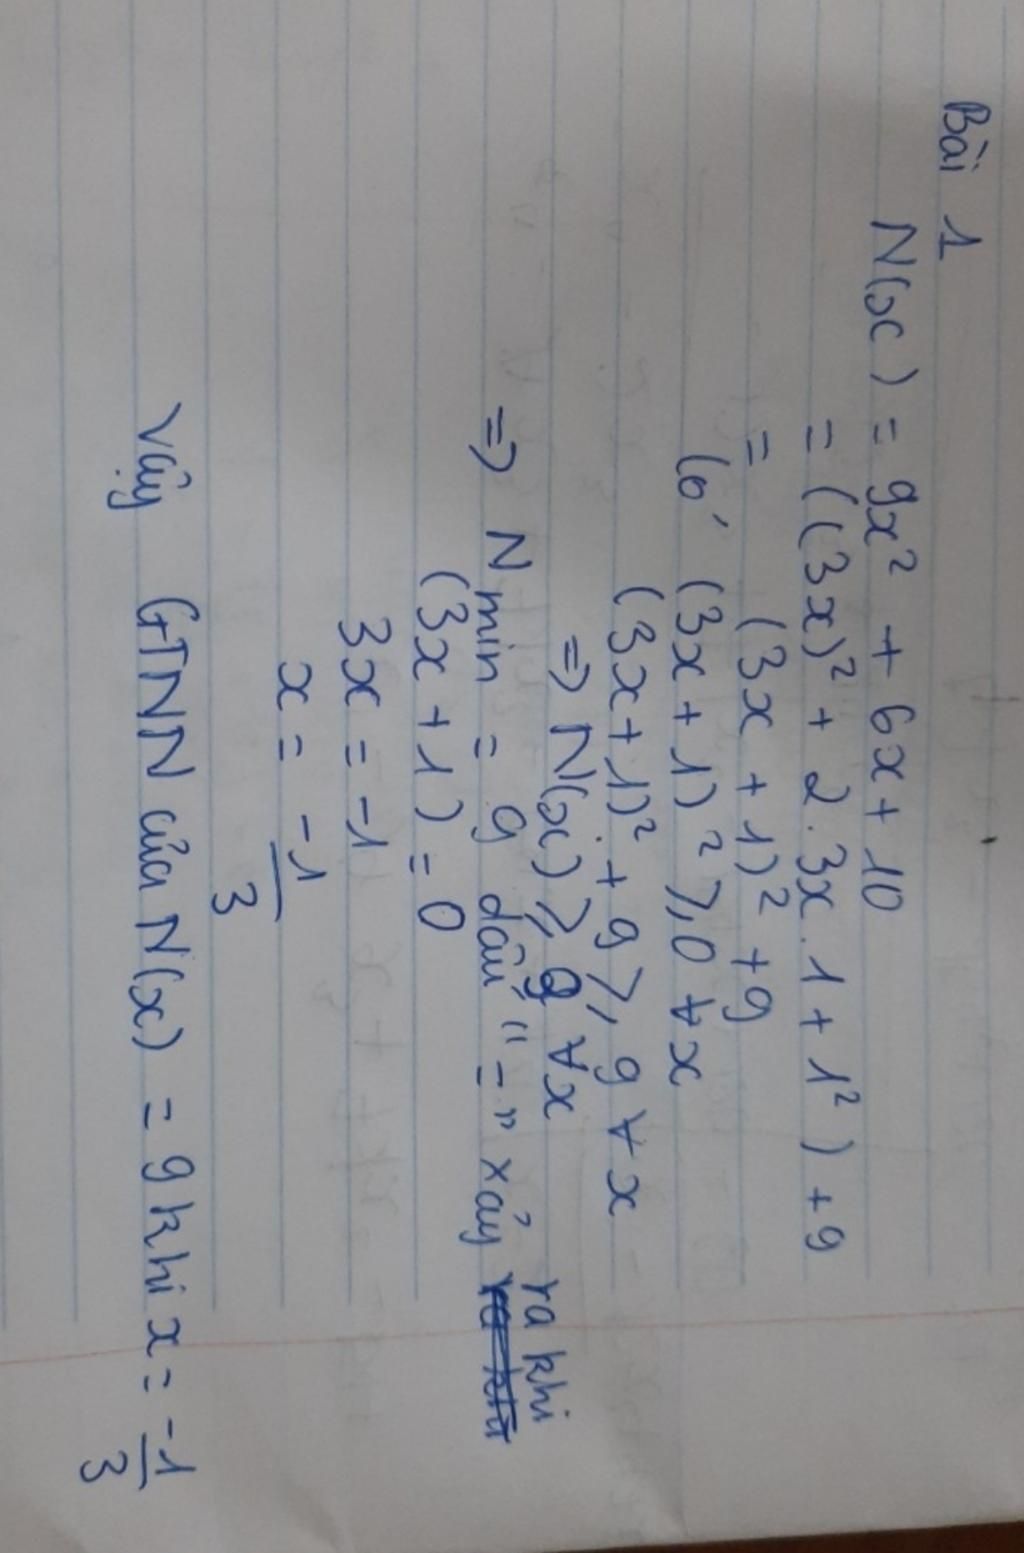 Bài 1
N(x) = 9x² + 6x + 10
= ((3x)² + 2.3x.1 + 1²) + 9
= (3x + 1)² + 9
Có (3x + 1)² ≥ 0 ∀x
(3x + 1)² + 9 ≥ 9 ∀x
=> N(x) ≥ 9 ∀x
=> N min = 9 dấu "=" xảy ra khi
(3x + 1) = 0
3x = -1
x = -1/3
Vậy GTNN của N(x) = 9 khi x = -1/3